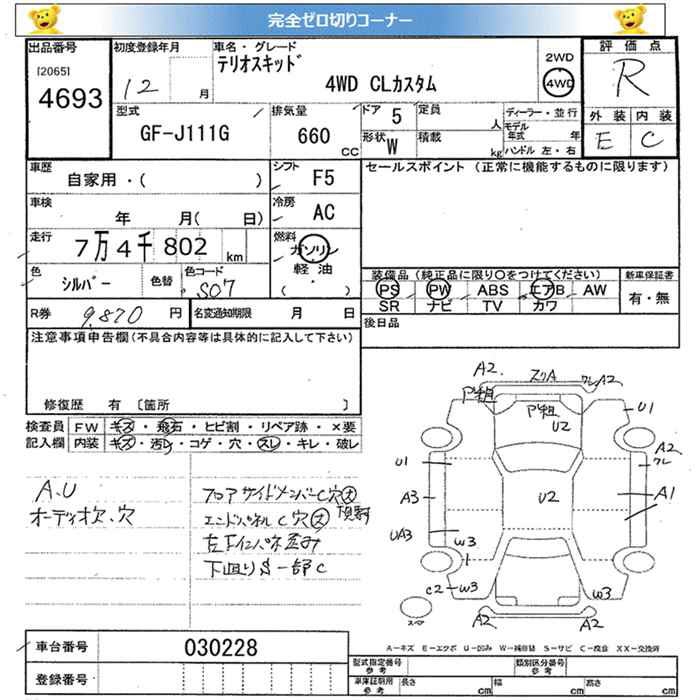 完全ゼロ切りコーナー
出品番号
[2065]
4693
初度登録年月
12 月
車名・グレード
テリオスキッド
4WD CLカスタム
2WD
4WD
評価点
R
外装 内装
E C
型式
GF-J111G
排気量
660
CC
ドア 5
形状 W
定員
人
積載
kg
ディーラー・並行
モデル年式 年
ハンドル 左・右
車歴
自家用・( )
シフト F5
車検
年 月( 日)
冷房 AC
走行
7万4千802 km
燃料
ガソリン
軽油
( ・ )
色
シルバー
色替
色コード
S07
R券 9,870 円
名変通知期限 月 日
セールスポイント (正常に機能するものに限ります)
装備品(純正品に限り○をつけてください)
PS PW ABS エアB AW
SR ナビ TV カワ
新車保証書
有・無
後日品
注意事項申告欄(不具合内容等は具体的に記入して下さい)
修復歴 有 〔箇所 〕
検査員記入欄
FW キズ・飛石・ヒビ割・リペア跡・×要
内装 キズ・汚レ・コゲ・穴・スレ・キレ・破レ
A.U
オーディオ欠、穴
フロアサイドメンバーC穴大
エンドパネルC穴大
左下インパネ歪み
下廻りS一部C
A2
スリA
クレA2
P組
P組
U2
U1
A2
クレ
U1
A3
U2
A1
UA3
W3
C2
W3
W3
A2
A2
スペア
A-キズ E-エクボ U-凹み W-補修跡 S-サビ C-腐食 XX-交換済
車台番号
030228
登録番号
型式指定番号
参考
類別区分番号
参考
車庫証明用
参考
長さ cm
幅 cm
高さ cm